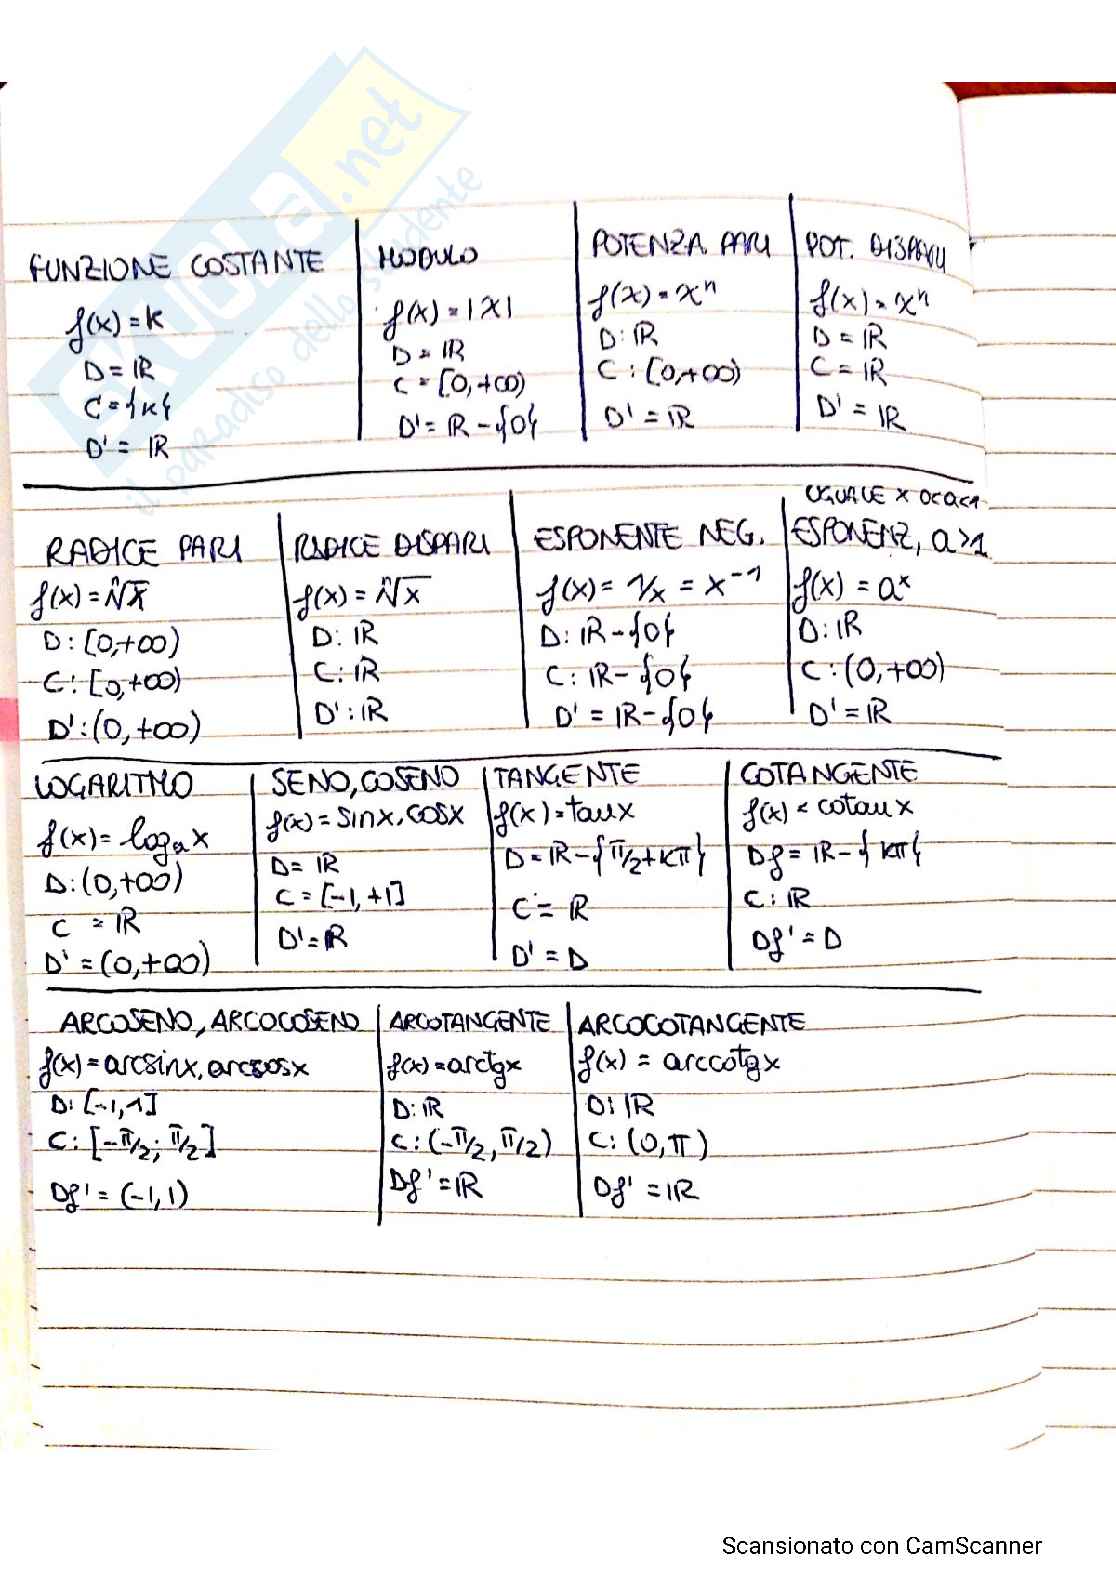 SKUOLA.net
il paradiso dello studente
FUNZIONE COSTANTE
f(x) = K
D = ℝ
C = {K}
D' = ℝ
MODULO
f(x) = |X|
D = ℝ
C = [0,+∞)
D' = ℝ - {0}
POTENZA PARI
f(x) = xⁿ
D: ℝ
C : [0,+∞)
D' = ℝ
POT. DISPARI
f(x) = xⁿ
D = ℝ
C = ℝ
D' = ℝ
RADICE PARI
f(x) = ⁿ√x
D : [0,+∞)
C : [0,+∞)
D' : (0,+∞)
RADICE DISPARI
f(x) = ⁿ√x
D: ℝ
C: ℝ
D' : ℝ
ESPONENTE NEG.
f(x) = 1/x = x⁻¹
D: ℝ - {0}
C : ℝ - {0}
D' = ℝ - {0}
UGUALE x 0<a<1
ESPONENZ, a>1
f(x) = aˣ
D: ℝ
C : (0,+∞)
D' = ℝ
LOGARITMO
f(x) = logₐx
D: (0,+∞)
C = ℝ
D' = (0,+∞)
SENO, COSENO
f(x) = sinx, cosx
D = ℝ
C = [-1,+1]
D' = ℝ
TANGENTE
f(x) = tanx
D = ℝ - {π/2 + Kπ}
C = ℝ
D' = D
COTANGENTE
f(x) = cotanx
Df = ℝ - {Kπ}
C : ℝ
Df' = D
ARCOSENO, ARCOCOSENO
f(x) = arcsinx, arccosx
D: [-1,1]
C : [-π/2; π/2]
Df' = (-1,1)
ARCOTANGENTE
f(x) = arctgx
D: ℝ
C : (-π/2, π/2)
Df' = ℝ
ARCOCOTANGENTE
f(x) = arccotgx
D: ℝ
C : (0,π)
Df' = ℝ
Scansionato con CamScanner